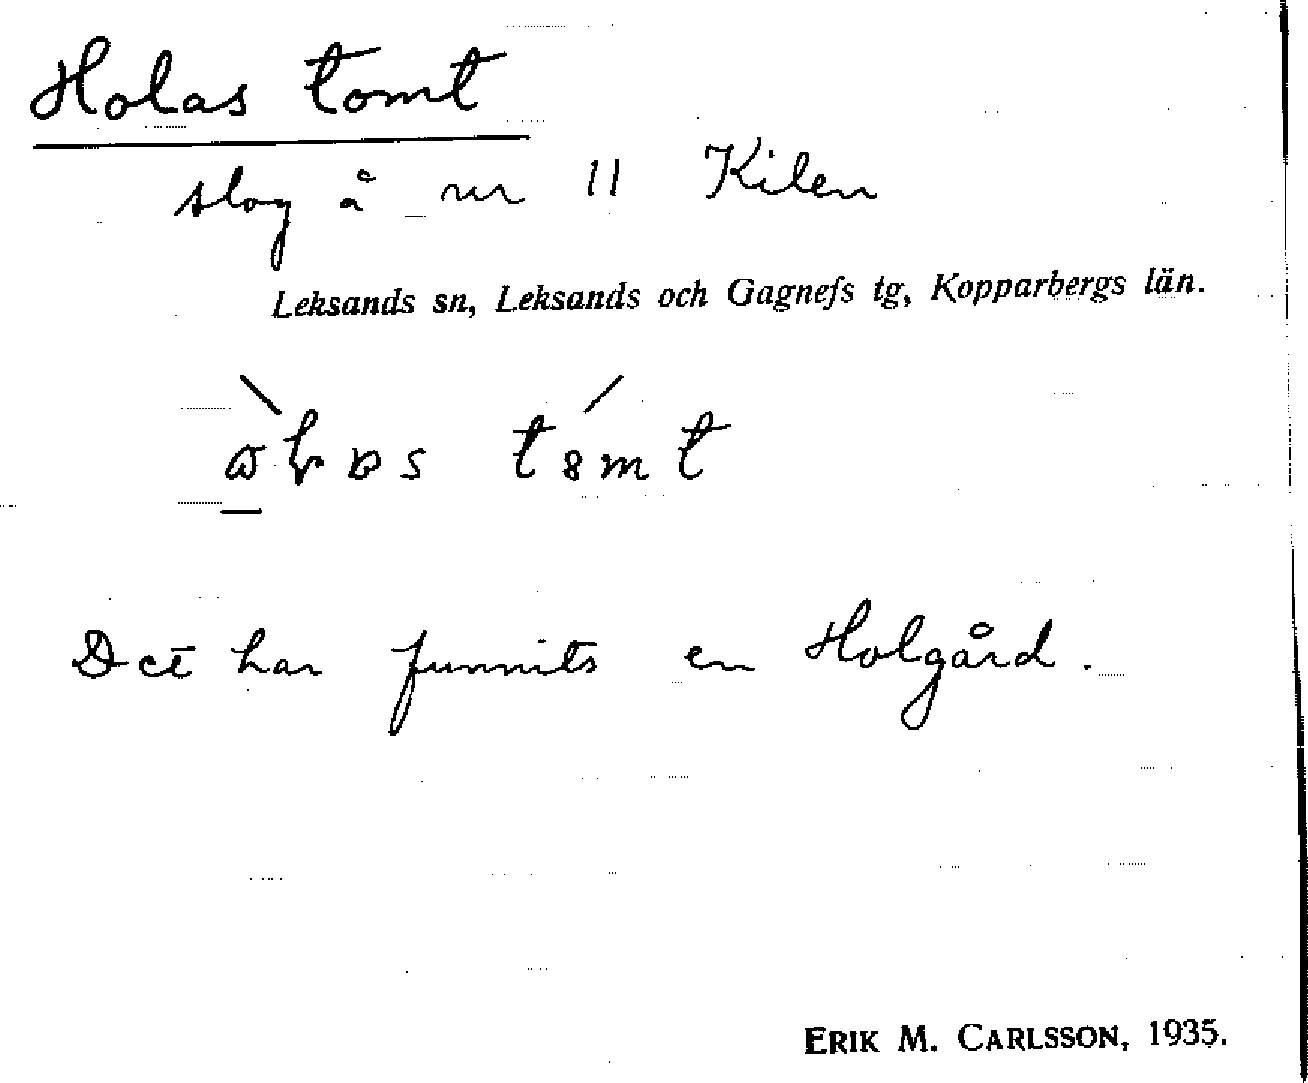 Holas tomt
slog å nr 11 Kilen
Leksands sn, Leksands och Gagnefs tg, Kopparbergs län.
tömt
Det har funnits en Holgård.
ERIK M. CARLSSON, 1935.